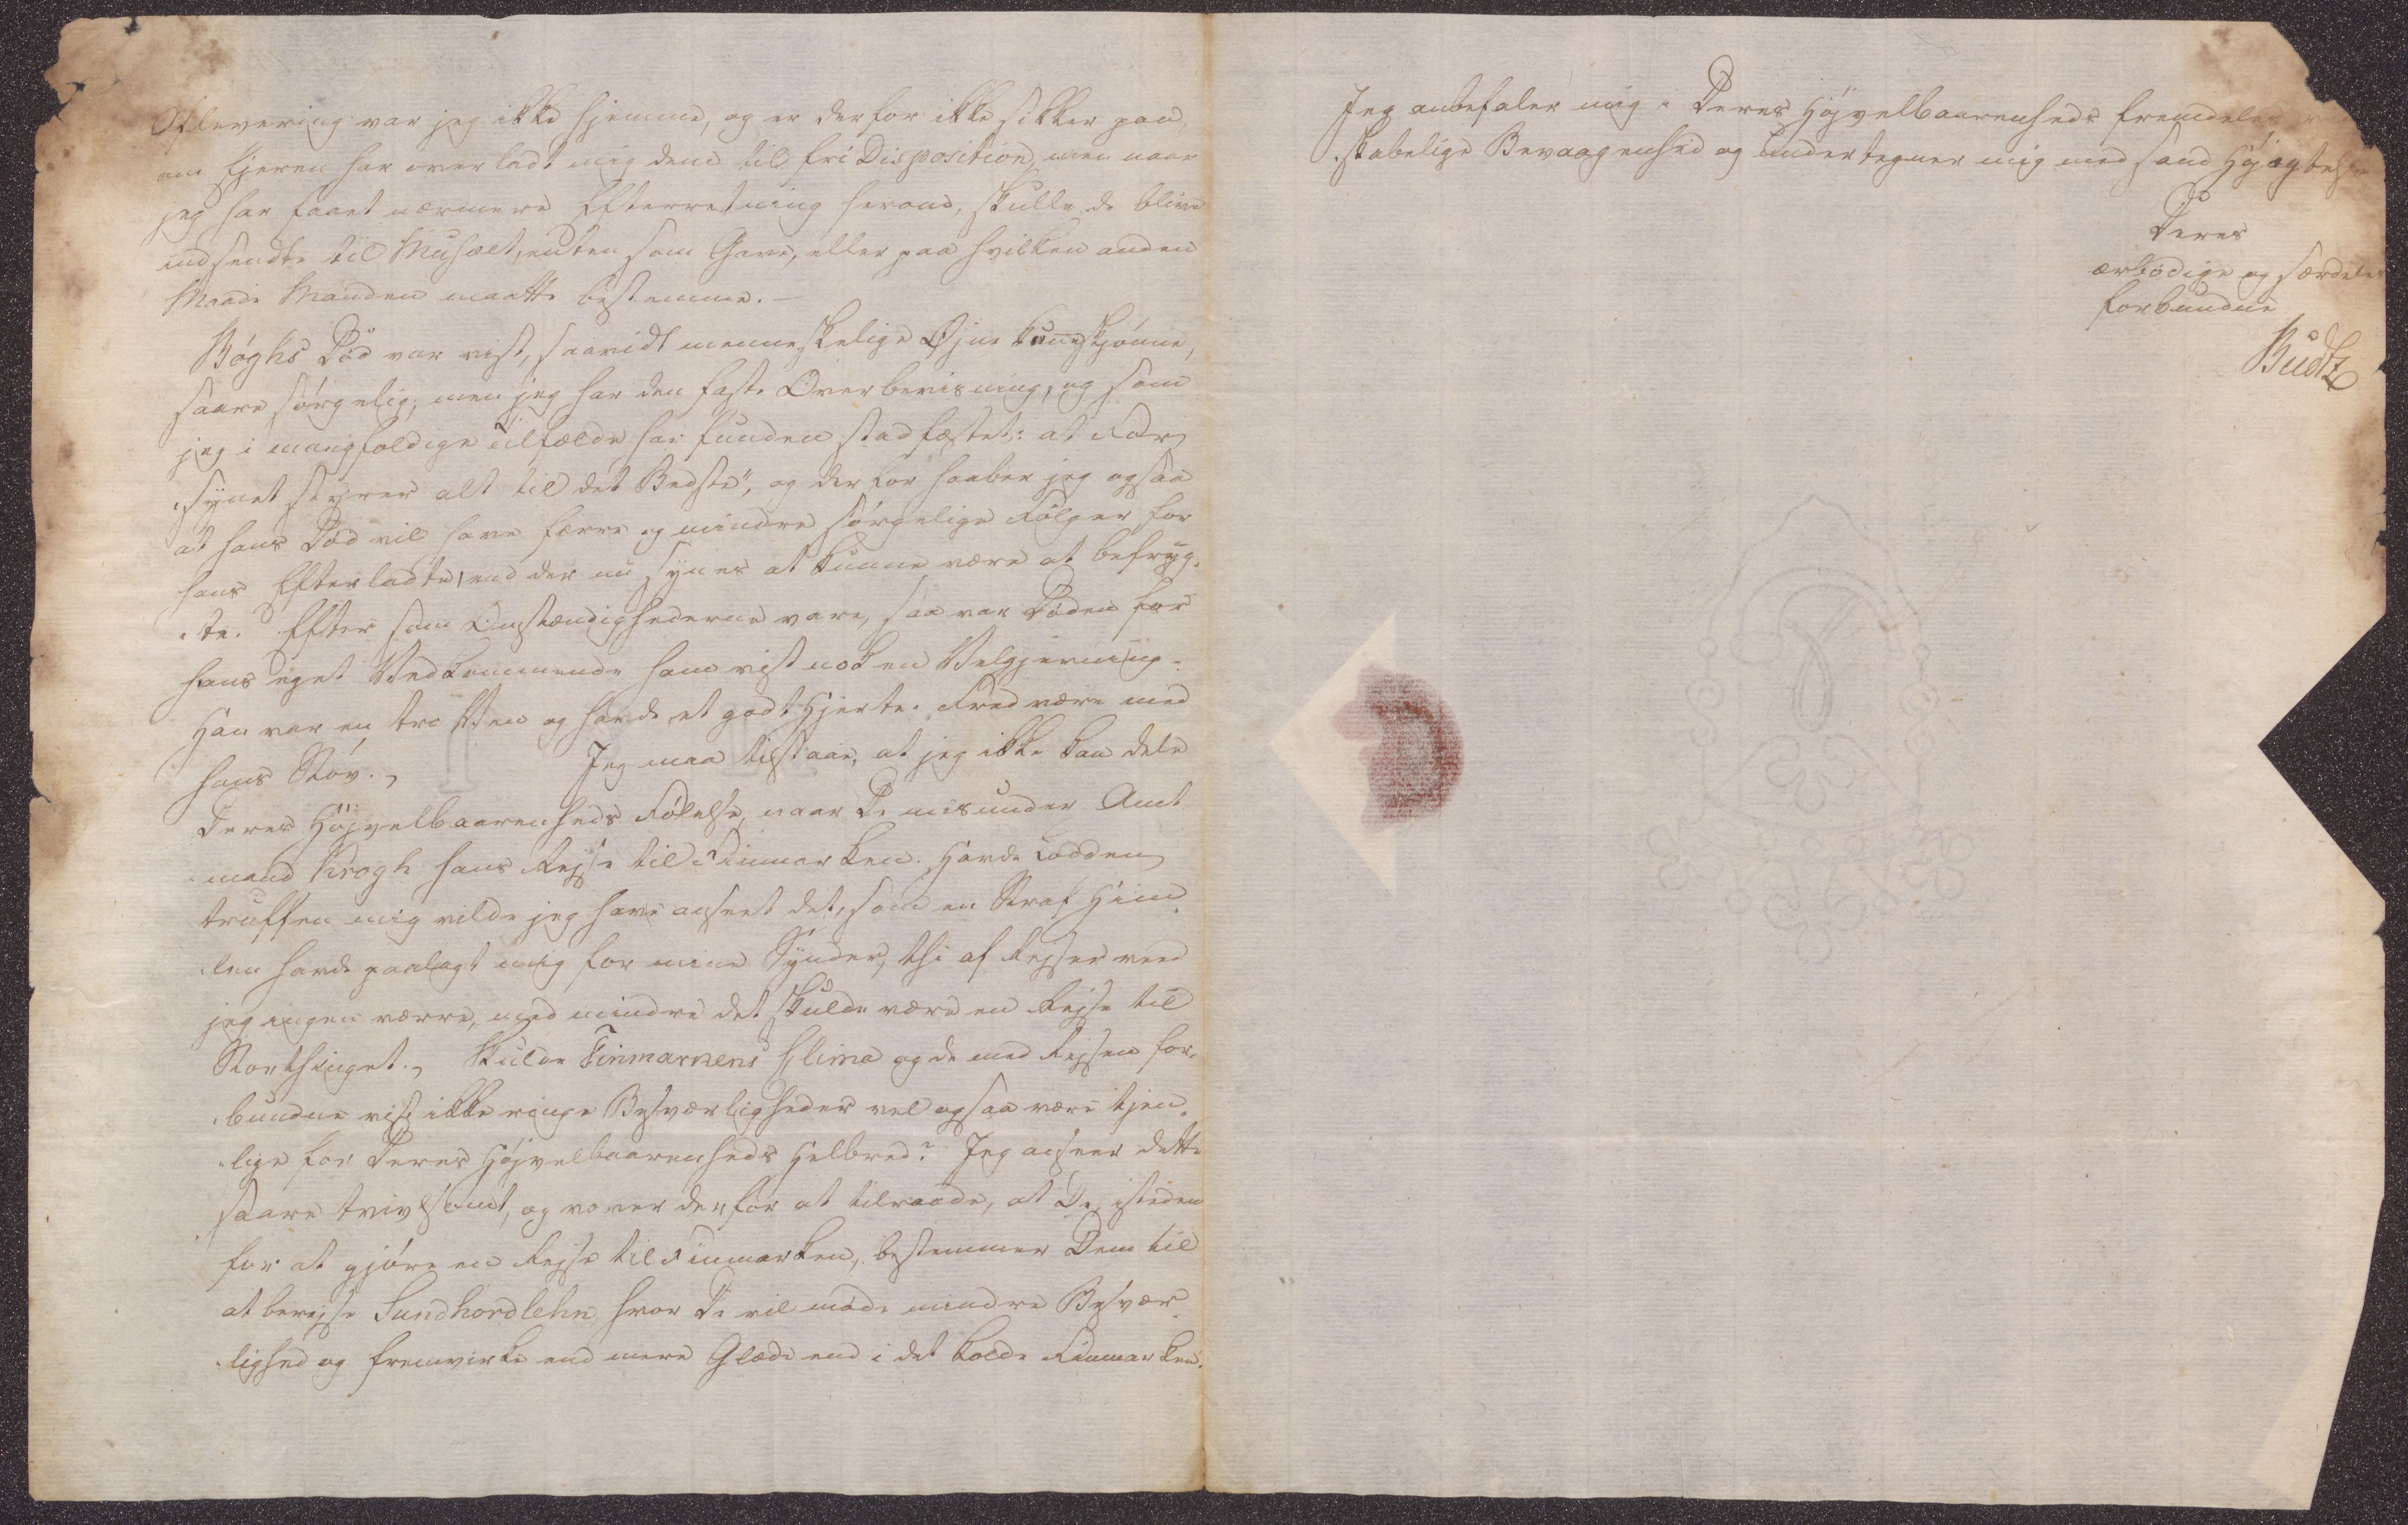 Aflevering var jeg ikke hjemme, og er derfor ikke sikker paa,
om Ejeren har overladt mig dem til fri Disposition, men naar
jeg har faaet nærmere Efterretning herom, skulle de blive
indsendte til Musæet, enten som Gave, eller paa hvilken anden
Maade Manden maatte bestemme. —
Bóghs Död var vist, saavidt menneskelige Øjne kunne skjónne,
saare sórgelig; men jeg har den faste Overbeviisning, og som
jeg i mangfoldige Tilfælde har funden stadfæstet: at For-
synet styrer alt til det Bedste", og derfor haaber jeg ogsaa
at hans Död vil have færre og mindre sórgelige Fólger for
hans Efterladte, end der nu synes at kunne være at befryg-
te. Efter som Omstændighederne vare, saa var Döden for
hans eget Vedkommende ham vist nok en Velgjerning.
Han var en tro Ven og havde et godt Hjerte. Fred være med
hans Stóv. Jeg maa tilstaae, at jeg ikke kan dele
Deres Höjvelbaarenheds Fólelse, naar De misunder Amt
mand Krogh hans Rejse til Finmarken. Havde Lodden
truffen mig vilde jeg have anseet det, som en Straf Him-
len havde paalagt mig for mine Synder, thi af Rejser veed
jeg ingen værre, med mindre det skulde være en Rejse til
Storthinget. Skulde Finmarkens Clima og de med Rejsen for-
bundne vist ikke ringe Besværligheder vel ogsaa være tjen-
lige for Deres Höjvelbaarenheds Helbred? Jeg anseer dette
saare tvivlsomt, og vover derfor at tilraade, at De, isteden
for at gjóre en Rejse til Finmarken, bestemmer Dem til
at berejse Sundhordlehn, hvor De vil móde mindre Besvær-
lighed og fremvirke end mere Glæde end i det kolde Finmarken.
Jeg anbefaler mig i Deres Höjvelbaarenheds fremdeles
skabelige Bevaagenhed og undertegner mig med sand Höjagtelse
Deres
ærbódige og særdeles
forbundne
Budtz